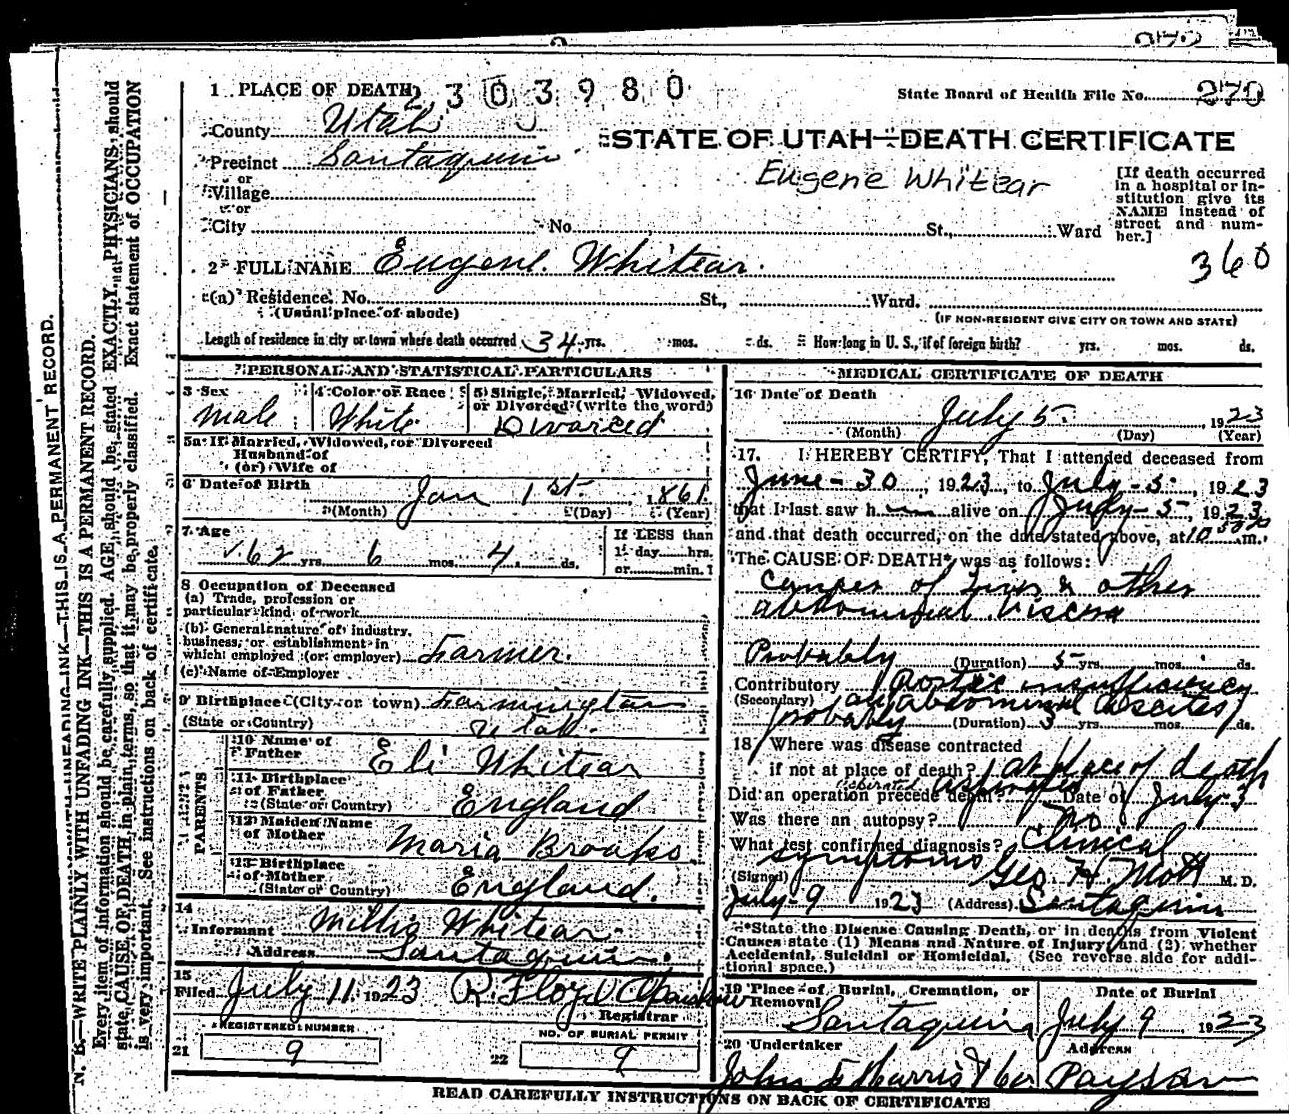 270
1 PLACE OF DEATH 2 3 0 3 9 8 0
State Board of Health File No. 270
County Utah
STATE OF UTAH—DEATH CERTIFICATE
Precinct Santaquin
or
Village
or
City No. St., Ward
Eugene Whitear
[If death occurred
in a hospital or in-
stitution give its
NAME instead of
street and num-
ber.]
2 FULL NAME Eugene Whitear.
360
(a) Residence. No. St., Ward.
(Usual place of abode)
(IF NON-RESIDENT GIVE CITY OR TOWN AND STATE)
Length of residence in city or town where death occurred 34 yrs. mos. ds. How long in U. S., if of foreign birth? yrs. mos. ds.
PERSONAL AND STATISTICAL PARTICULARS
3 Sex
Male
4 Color or Race
White
5 Single, Married, Widowed,
or Divorced (write the word)
Divorced
5a If Married, Widowed, or Divorced
Husband of
(or) Wife of
6 Date of Birth
Jan 1st. 1861
(Month) (Day) (Year)
7 Age
62 yrs. 6 mos. 4 ds.
If LESS than
1 day hrs.
or min.
8 Occupation of Deceased
(a) Trade, profession or
particular kind of work
(b) General nature of industry,
business, or establishment in
which employed (or employer) Farmer.
(c) Name of Employer
9 Birthplace (City or town) Farmington
(State or Country) Utah.
PARENTS
10 Name of
Father Eli Whitear
11 Birthplace
of Father
(State or Country) England
12 Maiden Name
of Mother Maria Brooks
13 Birthplace
of Mother
(State or Country) England.
14
Informant Willis Whitear
Address Santaquin.
15
Filed July 11 1923 R. Floyd
Registrar
REGISTERED NUMBER
21 9
NO. OF BURIAL PERMIT
22 9
MEDICAL CERTIFICATE OF DEATH
16 Date of Death
July 5. 1923
(Month) (Day) (Year)
17. I HEREBY CERTIFY, That I attended deceased from
June - 30, 1923, to July - 5, 1923
that I last saw him alive on July - 5, 1923
and that death occurred, on the date stated above, at 10 m.
The CAUSE OF DEATH* was as follows:
cancer of Liver & other
abdominal viscera
Probably (Duration) 5 yrs. mos. ds.
Contributory Aortic insufficiency
(Secondary) abdominal ascites
probably (Duration) 3 yrs. mos. ds.
18 Where was disease contracted
if not at place of death? at place of death
Did an operation precede death? Date of July-3
Was there an autopsy? No
What test confirmed diagnosis? Clinical
symptoms
(Signed) Geo. H. Mott M. D.
July-9 1923 (Address) Santaquin
*State the Disease Causing Death, or in deaths from Violent
Causes state (1) Means and Nature of Injury, and (2) whether
Accidental, Suicidal or Homicidal. (See reverse side for addi-
tional space.)
19 Place of Burial, Cremation, or
Removal
Santaquin
Date of Burial
July 9 1923
20 Undertaker
Address
Payson
READ CAREFULLY INSTRUCTIONS ON BACK OF CERTIFICATE
N. B.—WRITE PLAINLY WITH UNFADING INK—THIS IS A PERMANENT RECORD.
Every item of information should be carefully supplied. AGE should be stated EXACTLY. PHYSICIANS should
state CAUSE OF DEATH in plain terms, so that it may be properly classified. Exact statement of OCCUPATION
is very important. See instructions on back of certificate.
INK—THIS IS A PERMANENT RECORD.